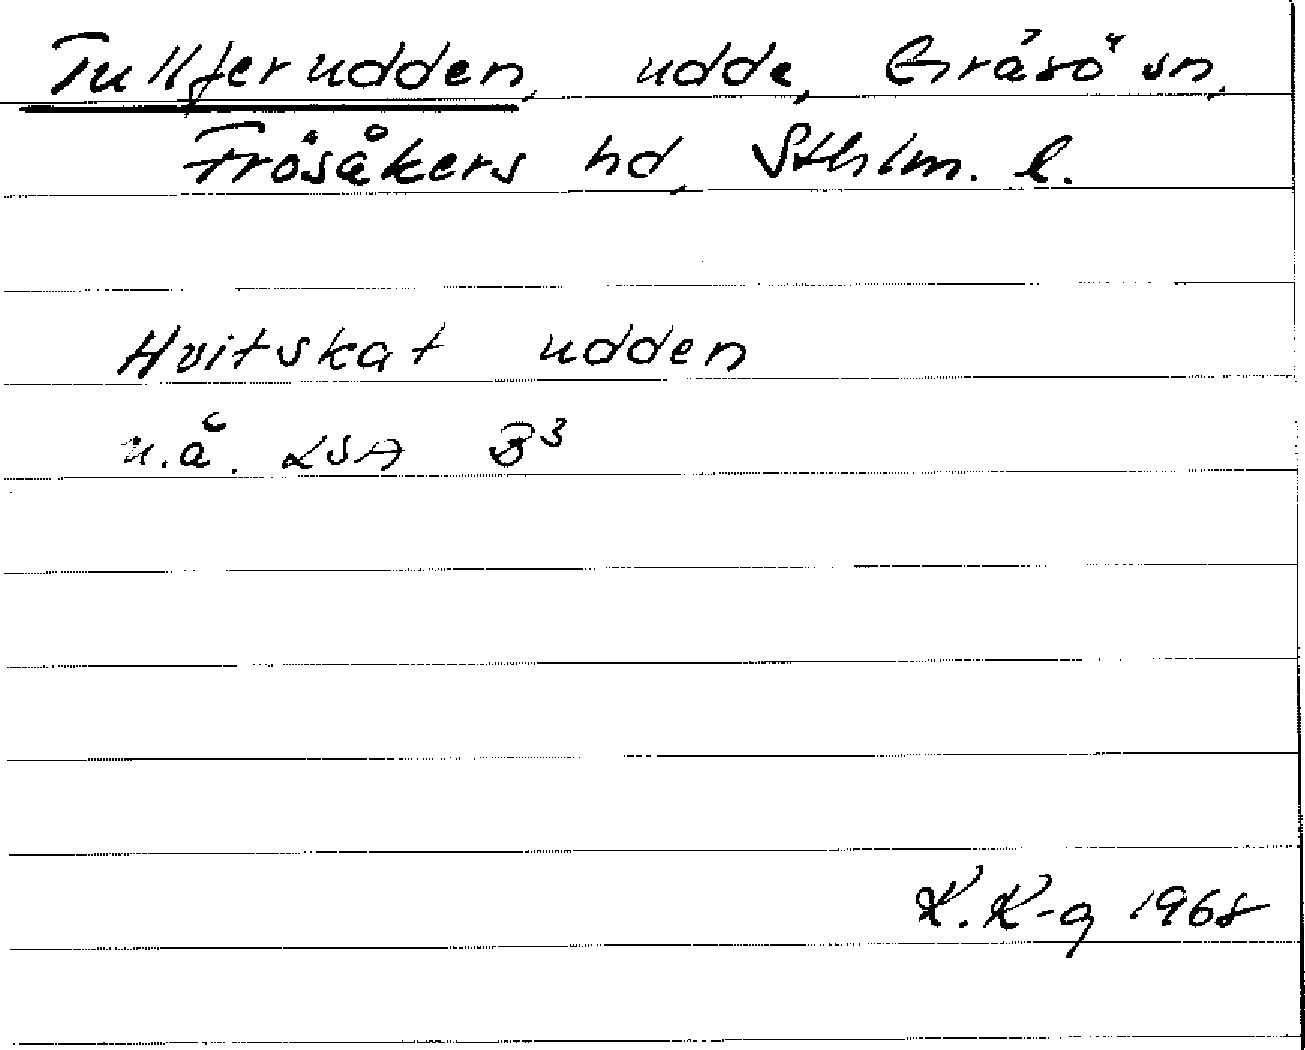 Tullferudden, udde, Gräsö sn,
Frösåkers hd, Sthlm. l.
Hvitskat udden
u.å. LSA B³
K. K-g 1968